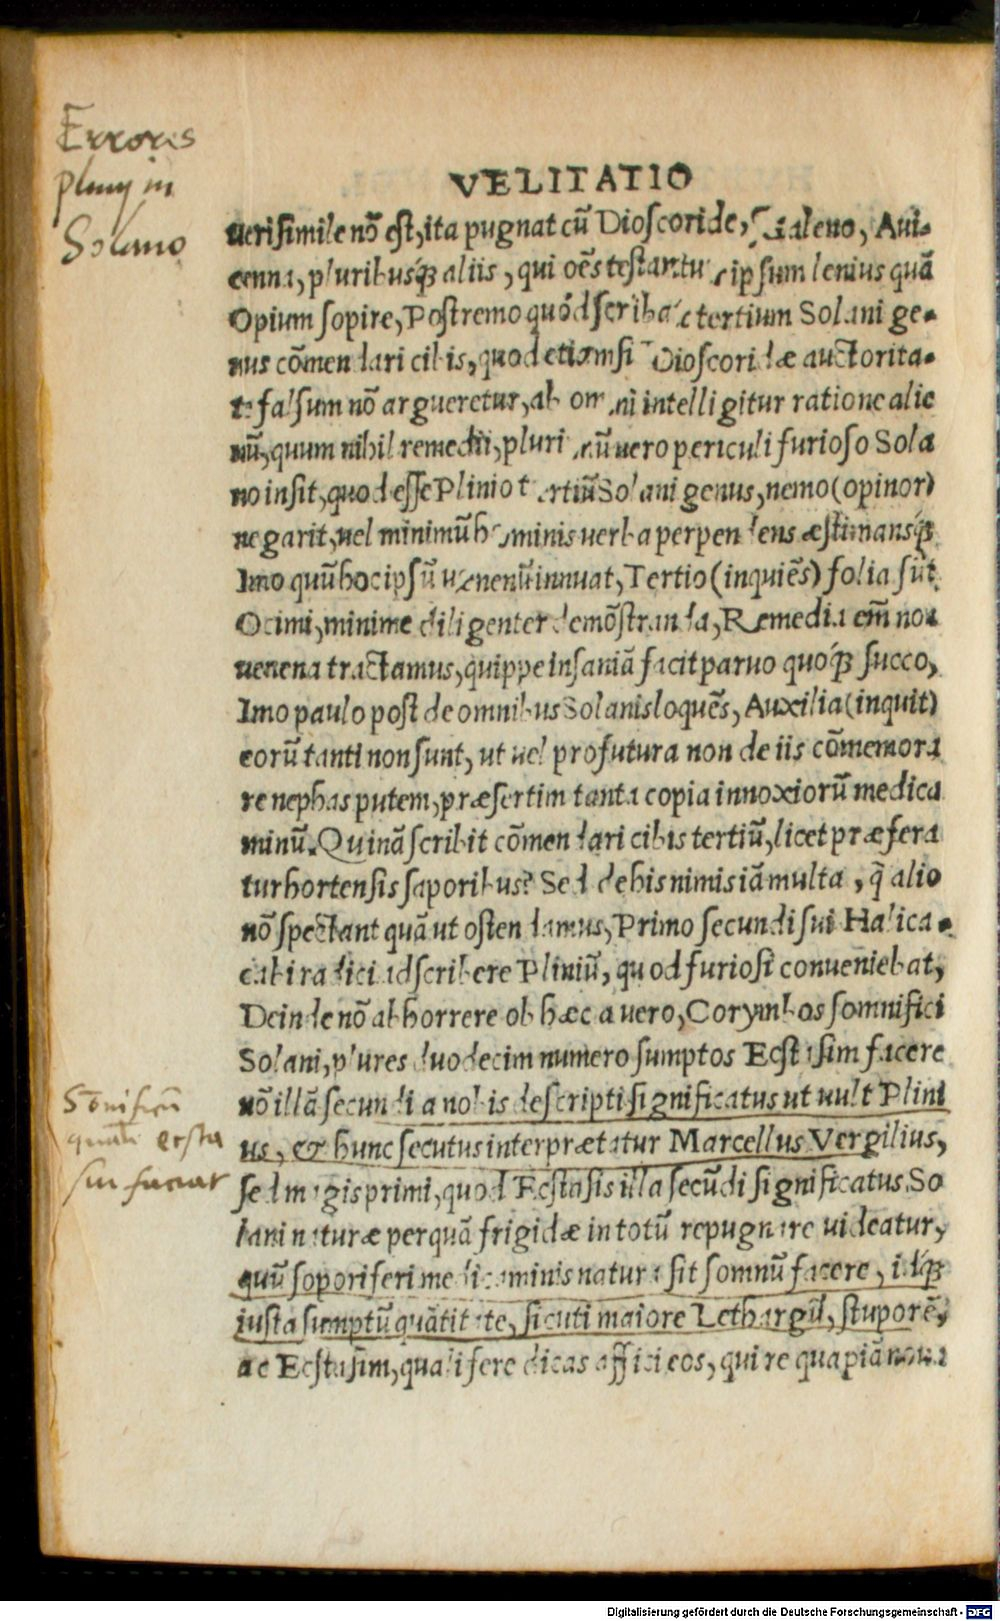 Errores
plinij in
Solano
VELITATIO
uerisimile nõ est, ita pugnat cũ Dioscoride, Galeno, Aui-
cenna, pluribusq́ꝫ aliis, qui oẽs testantur ipsum lenius quã
Opium sopire, Postremo quód scribat tertium Solani ge-
nus cõmendari cibis, quod etiamsi Dioscoridæ auctorita-
te falsum nõ argueretur, ab omni intelligitur ratione alie
nũ, quum nihil remedii, plurimũ uero periculi furioso Sola
no insit, quod esse Plinio tertiũ Solani genus, nemo (opinor)
negarit, uel minimũ hominis uerba perpendens æstimansq́ꝫ
Imo quũ hoc ipsũ uenenũ innuat, Tertio (inquiẽs) folia sũt
Ocimi, minime diligenter demõstranda, Remedia em̃ non
uenena tractamus, quippe insaniã facit paruo quoq́ꝫ succo,
Imo paulo post de omnibus Solanis loquẽs, Auxilia (inquit)
eorũ tanti non sunt, ut uel profutura non de iis cõmemora
re nephas putem, præsertim tanta copia innoxiorũ medica
minũ. Quinã scribit cõmendari cibis tertiũ, licet præfera
tur hortensis saporibus? Sed de his nimis iã multa, q̃ alio
nõ spectant quã ut ostendamus, Primo secundi sui Halica-
cabi radici adscribere Pliniũ, quod furiosi conueniebat,
Deinde nõ abhorrere ob hæc a uero, Corymbos somnifici
Solani, plures duodecim numero sumptos Ecstasim facere
nõ illã secundi a nobis descripti significatus ut uult Plini
us, & hunc secutus interprætatur Marcellus Vergilius,
sed magis primi, quod Ecstasis illa secũdi significatus So
lani naturæ perquã frigidæ in totũ repugnare uideatur,
quũ soporiferi medicaminis natura sit somnũ facere, idq́ꝫ
iusta sumptũ quãtitate, sicuti maiore Lethargũ, stuporẽ,
ac Ecstasim, quali fere dicas affici eos, qui re quapiã noua
Sõniferũ
ecsta
sin faciat
Digitalisierung gefördert durch die Deutsche Forschungsgemeinschaft - DFG